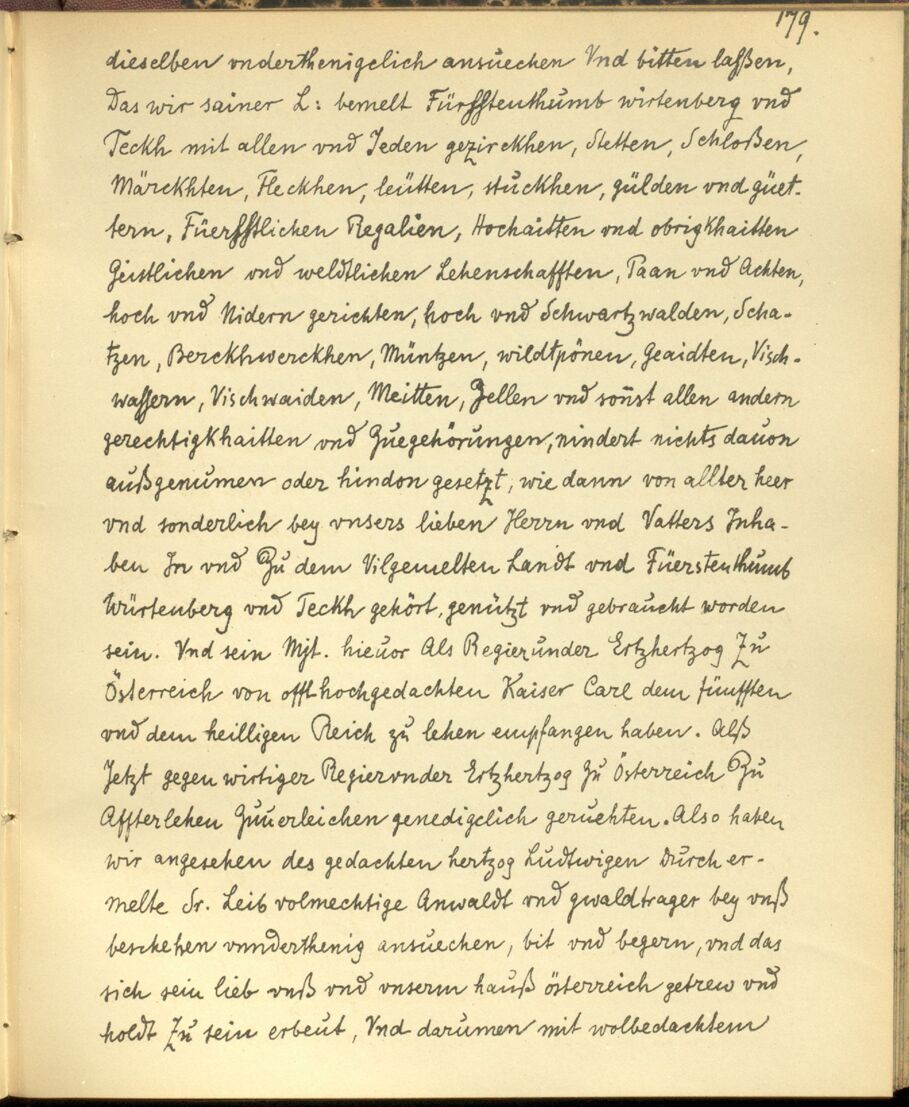 179.
dieselben vnderthenigclich ansuechen Vnd bitten laßen,
Das wir sainer L: bemelt Fürsstenthumb wirtenberg vnd
Teckh mit allen vnd Jeden gezirckhen, Stetten, Schloßen,
Märckhten, Fleckhen, leütten, stuckhen, gülden vnd güet-
tern, Füersstlichen Regalien, Hochaitten vnd obrigkhaitten
Geistlichen vnd weldtlichen Lehenschafften, Paan vnd Achten,
hoch vnd Nidern gerichten, hoch vnd Schwartzwalden, Scha-
tzen, Berckhwerckhen, Müntzen, wildtpönen, Geaidten, Visch-
wassern, Vischwaiden, Meitten, Zellen vnd sonst allen andern
gerechtigkhaitten vnd Zuegehörungen, nindert nichts dauon
außgenumen oder hindon gesetzt, wie dann von allter heer
vnd sonderlich bey vnsers lieben Herrn vnd Vatters Inha-
ben In vnd Zu dem Vilgemelten Landt vnd Füerstenthumb
Würtenberg vnd Teckh gehört, genützt vnd gebraucht worden
sein. Vnd sein Mjt. hieuor Als Regierunder Ertzhertzog Zu
Österreich von offthochgedachten Kaiser Carl dem fünfften
vnd dem heilligen Reich zu lehen empfangen haben. Alß
Jetzt gegenwirtiger Regieronder Ertzhertzog Zu Österreich Zu
Affterlehen Zuuerleichen genedigclich geruehten. Also haben
wir angesehen des gedachten hertzog Ludtwigen Durch er-
melte Sr. Leib volmechtige Anwaldt vnd gwaldtrager bey vnß
beschehen vnnderthenig ansuechen, bit vnd begern, vnd das
sich sein lieb vnß vnd vnserm hauß österreich getrew vnd
holdt Zu sein erbeut, Vnd darumen mit wolbedachtem